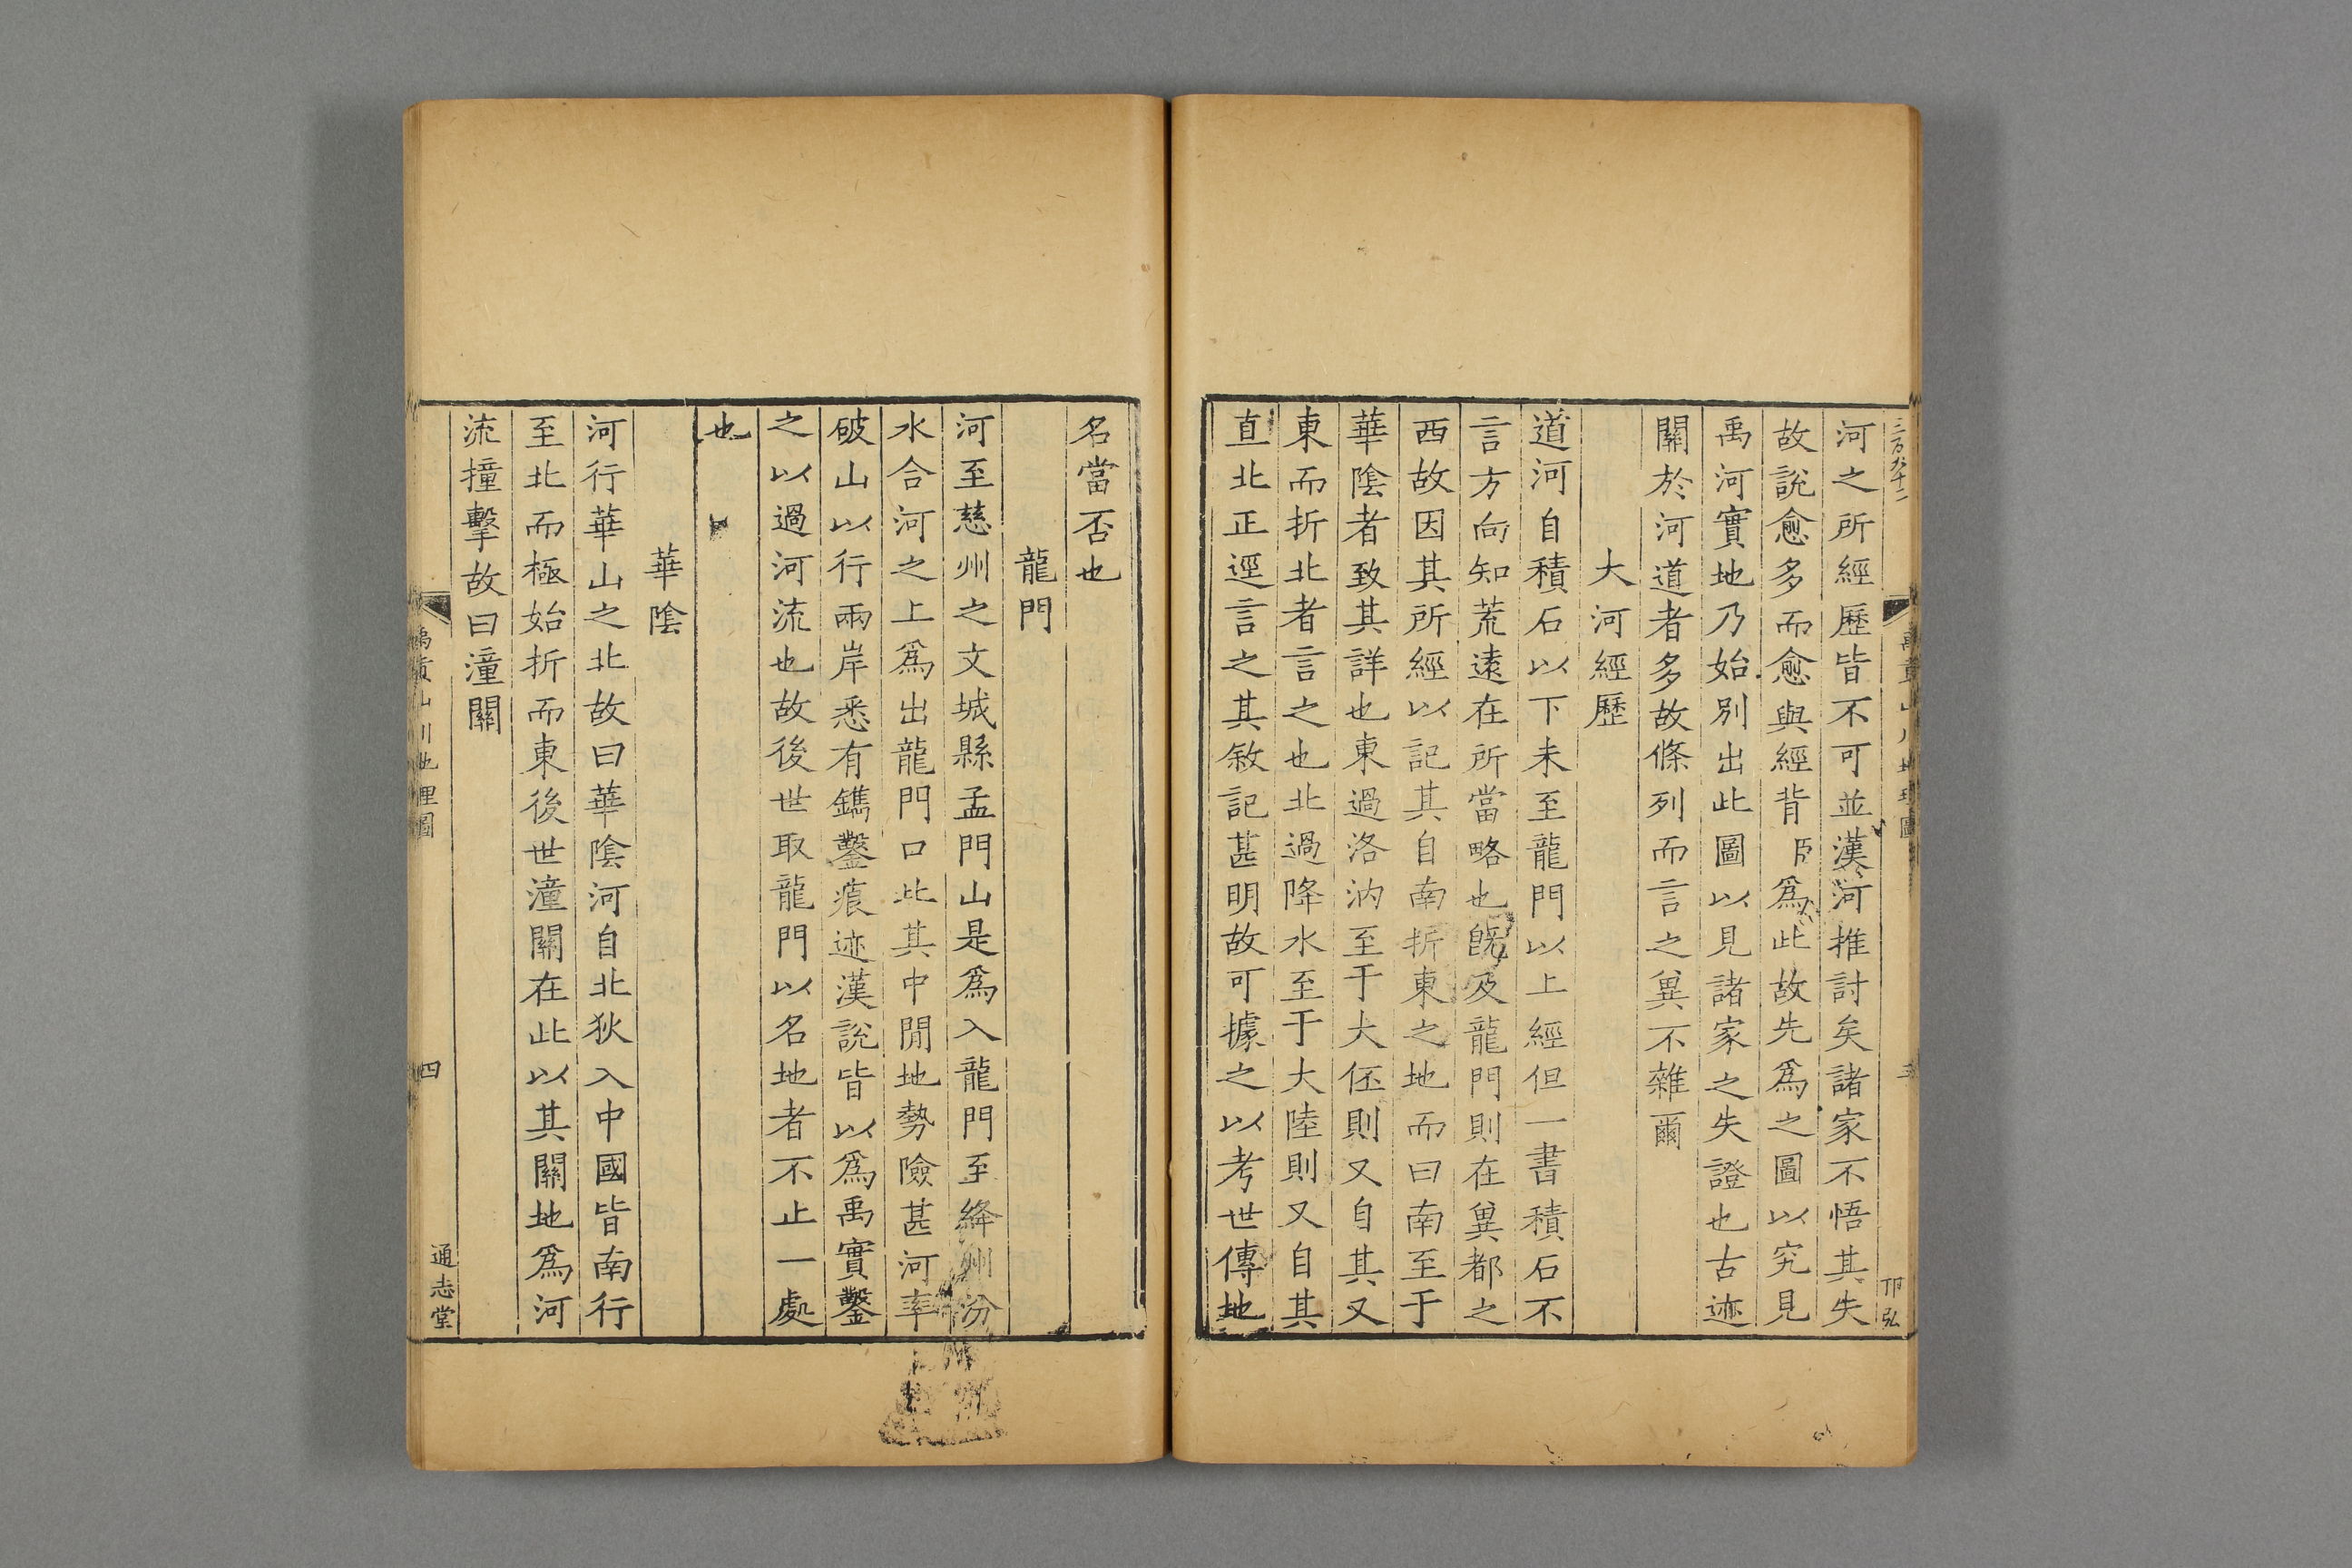 三百九十二
禹貢山川地理圖
三
邛弘
河之所經歷皆不可並漢河推討矣諸家不悟其失
故說愈多而愈與經背臣爲此故先爲之圖以究見
禹河實地乃始別出此圖以見諸家之失證也古迹
關於河道者多故條列而言之兾不雜爾
大河經歷
道河自積石以下未至龍門以上經但一書積石不
言方向知荒逺在所當略也旣及龍門則在兾都之
西故因其所經以記其自南折東之地而曰南至于
華陰者致其詳也東過洛汭至于大伾則又自其又
東而折北者言之也北過降水至于大陸則又自其
直北正逕言之其敘記甚明故可據之以考世傳地
名當否也
龍門
河至慈州之文城縣孟門山是爲入龍門至絳州汾
水合河之上爲出龍門口此其中閒地勢險甚河率
破山以行兩岸悉有鐫鑿痕迹漢說皆以爲禹實鑿
之以過河流也故後世取龍門以名地者不止一處
也
華陰
河行華山之北故曰華陰河自北狄入中國皆南行
至北而極始折而東後世潼關在此以其關地爲河
流撞擊故曰潼關
禹貢山川地理圖
四
通志堂